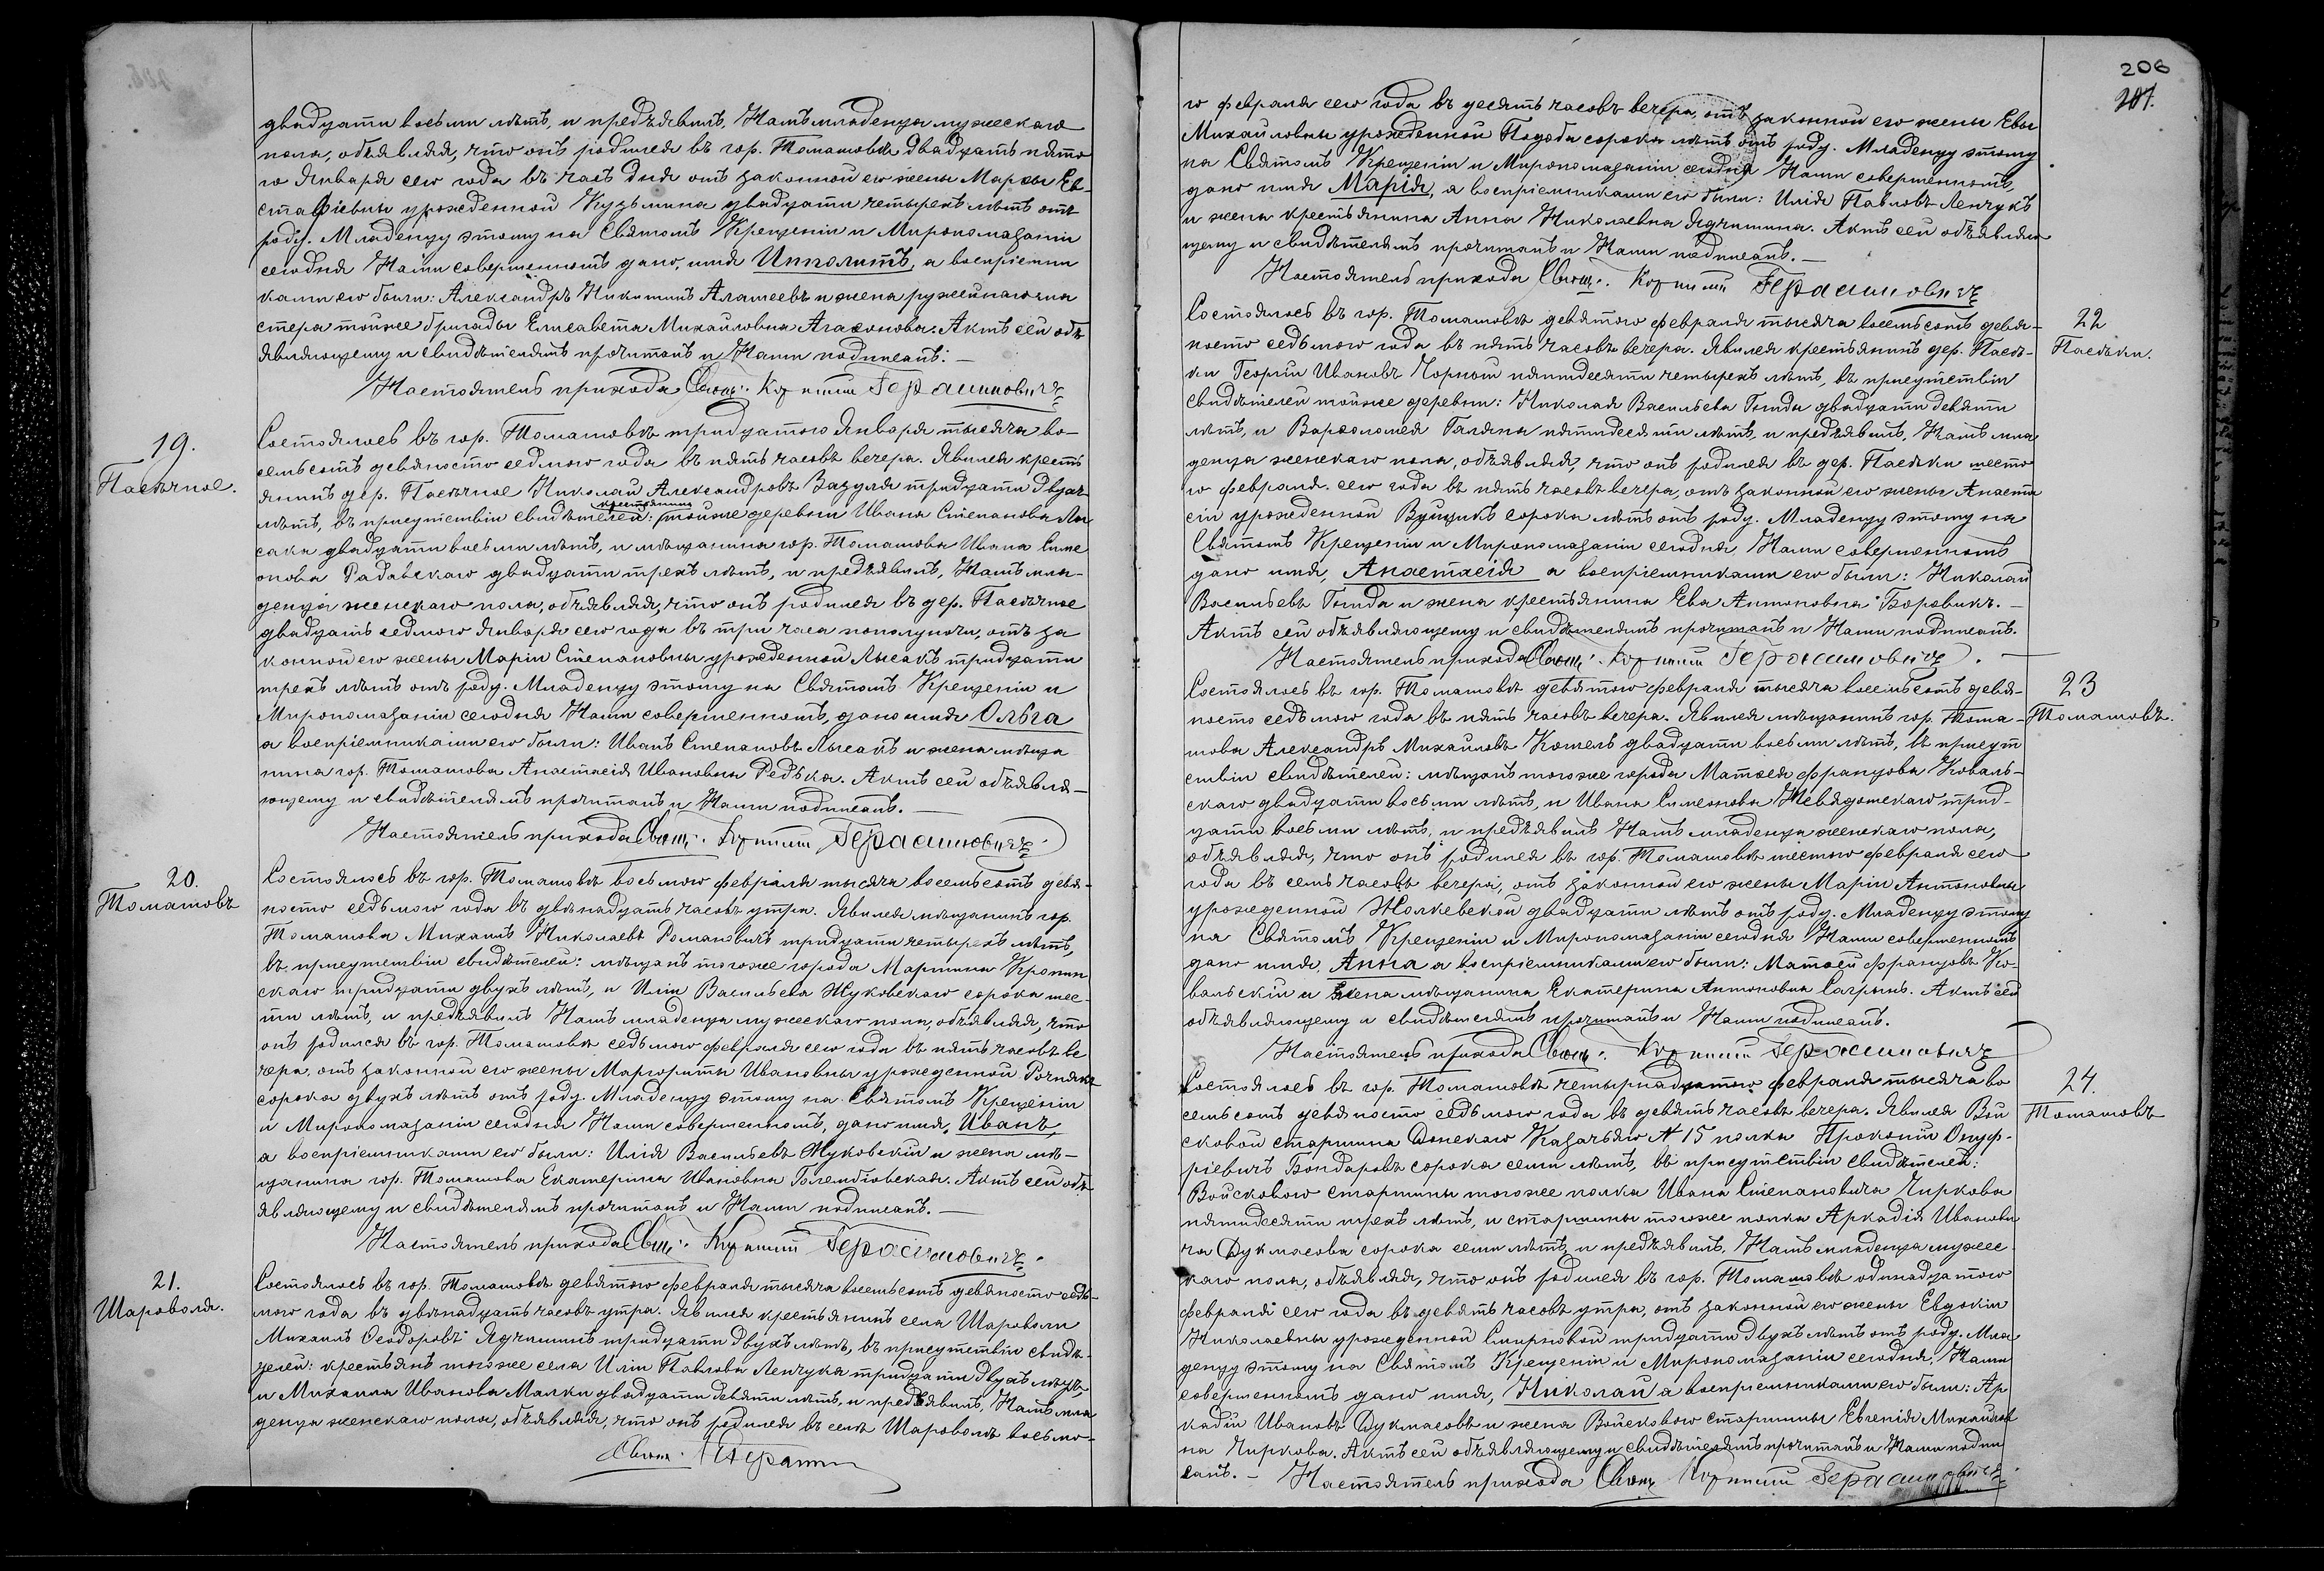 двадцати восьми лѣтъ, и предъявилъ Намъ младенца мужескаго
пола, объявляя, что онъ родился въ гор. Томашовѣ двадцать пято-
го Января сего года въ часъ дня отъ законной его жены Марѳы Ев-
стафіевны урожденной Кузьмина двадцати четырехъ лѣтъ отъ
роду. Младенцу этому на Святомъ Крещеніи и Миропомазаніи
сегодня Нами совершенномъ дано, имя Ипполитъ, а воспріемни
ками его были: Александръ Никитинъ Алатеевъ и жена ружейнаго ма
стера тойже бригады Елисавета Михайловна Агаѳонова. Актъ сей объ
являющему и свидѣтелямъ прочитанъ и Нами подписанъ. —
Настоятель прихода Свящ. Корнилій Герасимовичъ
19.
Пасѣчное.
Состоялось въ гор. Томашовѣ тридцатого Января тысяча во-
семьсотъ девяносто седьмого года въ пять часовъ вечера. Явился кресть
янинъ дер. Пасѣчное Николай Александровъ Вазуля тридцати двухъ
крестьянина
лѣтъ, въ присутствіи свидѣтелей: тойже деревни Ивана Степанова Лы
сака двадцати восьми лѣтъ, и мѣщанина гор. Томашова Ивана Симе
онова Радавскаго двадцати трехъ лѣтъ, и предъявилъ, Намъ мла-
денца женскаго пола, объявляя, что онъ родился въ дер. Пасѣчное
двадцать седмого Января сего года въ три часа пополуночи, отъ за
конной его жены Маріи Степановны урожденной Лысакъ тридцати
трехъ лѣтъ отъ роду. Младенцу этому на Святомъ Крещеніи и
Миропомазаніи сегодня Нами совершенномъ, дано имя Ольга
а воспріемниками его были: Иванъ Степановъ Лысакъ и жена мѣща
нина гор. Томашова Анастасія Ивановна Редька. Актъ сей объявля-
ющему и свидѣтелямъ прочитанъ и Нами подписанъ. —
Настоятель прихода Свящ. Корнилій Герасимовичъ
20.
Томашовъ
Состоялось въ гор. Томашовѣ восьмого февраля тысяча восемьсотъ девя-
носто седьмого года въ двѣнадцать часовъ утра. Явился мѣщанинъ гор.
Томашова Михаилъ Николаевъ Романовичъ тридцати четырехъ лѣтъ,
въ присутствіи свидѣтелей: мѣщанъ тогоже города Мартина Кропин
скаго тридцати двухъ лѣтъ, и Иліи Васильева Жуковскаго сорока шес-
ти лѣтъ, и предъявилъ Намъ младенца мужескаго пола, объявляя, что
онъ родился въ гор. Томашовѣ седьмого февраля сего года въ пять часовъ ве
чера, отъ законной его жены Маргориты Ивановны урожденной Рогнякъ
сорока двухъ лѣтъ отъ роду. Младенцу этому на Святомъ Крещеніи
и Миропомазаніи сегодня Нами совершенномъ, дано имя, Иванъ,
а воспріемниками его были: Илія Васильевъ Жуковскій и жена мѣ-
щанина гор. Томашова Екатерина Ивановна Голембіовская. Актъ сей объ
являющему и свидѣтелямъ прочитанъ и Нами подписанъ. —
Настоятель прихода Свящ. Корнилій Герасимовичъ.
21.
Шароволя.
Состоялось въ гор. Томашовѣ девятого февраля тысяча восемьсотъ девяносто седь-
мого года въ двѣнадцать часовъ утра. Явился крестьянинъ села Шароволи
Михаилъ Ѳеодоровъ Ядчишинъ тридцати двухъ лѣтъ, въ присутствіи свидѣ-
телей: крестьянъ тогоже села Иліи Павлова Ленчука тридцати двухъ лѣтъ
и Михаила Иванова Малки двадцати девяти лѣтъ, и предъявилъ, Намъ мла
денца женскаго пола, объявляя, что онъ родился въ селѣ Шароволѣ восьмо-
Свящ.
206
207.
го февраля сего года въ десять часовъ вечера, отъ законной его жены Евы
Михайловны урожденной Подоба сорока лѣтъ отъ роду. Младенцу этому
на Святомъ Крещеніи и Миропомазаніи сегодня Нами совершенномъ,
дано имя Марія, а воспріемниками его были: Илія Павловъ Ленчукъ
и жена крестьянина Анна Николаевна Ядчишина. Актъ сей объявляю
щему и свидѣтелямъ прочитанъ и Нами подписанъ. —
Настоятель прихода Свящ. Корнилій Герасимовичъ
22
Пасѣки.
Состоялось въ гор. Томашовѣ девятого февраля тысяча восемьсотъ девя-
носто седьмого года въ пять часовъ вечера. Явился крестьянинъ дер. Пасѣ-
ки Георгій Ивановъ Чорный пятидесяти четырехъ лѣтъ, въ присутствіи
свидѣтелей тойже деревни: Николая Васильева Гонды двадцати девяти
лѣтъ, и Варѳоломея Галяны пятидесяти лѣтъ, и предъявилъ, Намъ мла
денца женскаго пола, объявляя, что онъ родился въ дер. Пасѣки шесто
го февраля сего года въ пять часовъ вечера, отъ законной его жены Анаста
сіи урожденной Вуйцикъ сорока лѣтъ отъ роду. Младенцу этому на
Святомъ Крещеніи и Миропомазаніи сегодня Нами совершенномъ
дано имя, Анастасія а воспріемниками его были: Николай
Васильевъ Гонда и жена крестьянина Ева Антоновна Боровикъ. —
Актъ сей объявляющему и свидѣтелямъ прочитанъ и Нами подписанъ.
Настоятель прихода Свящ. Корнилій Герасимовичъ. —
23
Томашовъ.
Состоялось въ гор. Томашовѣ девятого февраля тысяча восемьсотъ девя-
носто седьмого года въ пять часовъ вечера. Явился мѣщанинъ гор. Тома-
шова Александръ Михайловъ Кошель двадцати восьми лѣтъ, въ присут
ствіи свидѣтелей: мѣщанъ тогоже города Матѳея Францова Коваль-
скаго двадцати восьми лѣтъ, и Ивана Симеонова Невядомскаго трид-
цати восьми лѣтъ, и предъявилъ Намъ младенца женскаго пола,
объявляя, что онъ родился въ гор. Томашовѣ шестого февраля сего
года въ семь часовъ вечера, отъ законной его жены Маріи Антоновны
урожденной Жолкевской двадцати лѣтъ отъ роду. Младенцу этому
на Святомъ Крещеніи и Миропомазаніи сегодня Нами совершенномъ
дано имя, Анна а воспріемниками его были: Матѳей Францовъ Ко-
вальскій и жена мѣщанина Екатерина Антоновна Сагрынь. Актъ сей
объявляющему и свидѣтелямъ прочитанъ и Нами подписанъ.
Настоятель прихода Свящ. Корнилій Герасимовичъ
24.
Томашовъ
Состоялось въ гор. Томашовѣ четырнадцатого февраля тысяча во
семьсотъ девяносто седьмого года въ девять часовъ вечера. Явился Вой
сковой старшина Донскаго Казачьяго № 15 полка Прокопій Онуф-
ріевичъ Бондаровъ сорока семи лѣтъ, въ присутствіи свидѣтелей:
Войскового старшины тогоже полка Ивана Степановича Чиркова
пятидесяти трехъ лѣтъ, и старшины тогоже полка Аркадія Иванови
ча Дукмасова сорока семи лѣтъ, и предъявилъ, Намъ младенца мужес
каго пола, объявляя, что онъ родился въ гор. Томашовѣ одинадцатого
февраля сего года въ девять часовъ утра, отъ законной его жены Евдокіи
Николаевны урожденной Смирновой тридцати двухъ лѣтъ отъ роду. Мла
денцу этому на Святомъ Крещеніи и Миропомазаніи сегодня, Нами
совершенномъ дано имя, Николай а воспріемниками его были: Ар
кадій Ивановъ Дукмасовъ и жена Войскового старшины Евгенія Михайлов
на Чиркова. Актъ сей объявляющему и свидѣтелямъ прочитанъ и Нами подпи
санъ. — Настоятель прихода Свящ. Корнилій Герасимовичъ